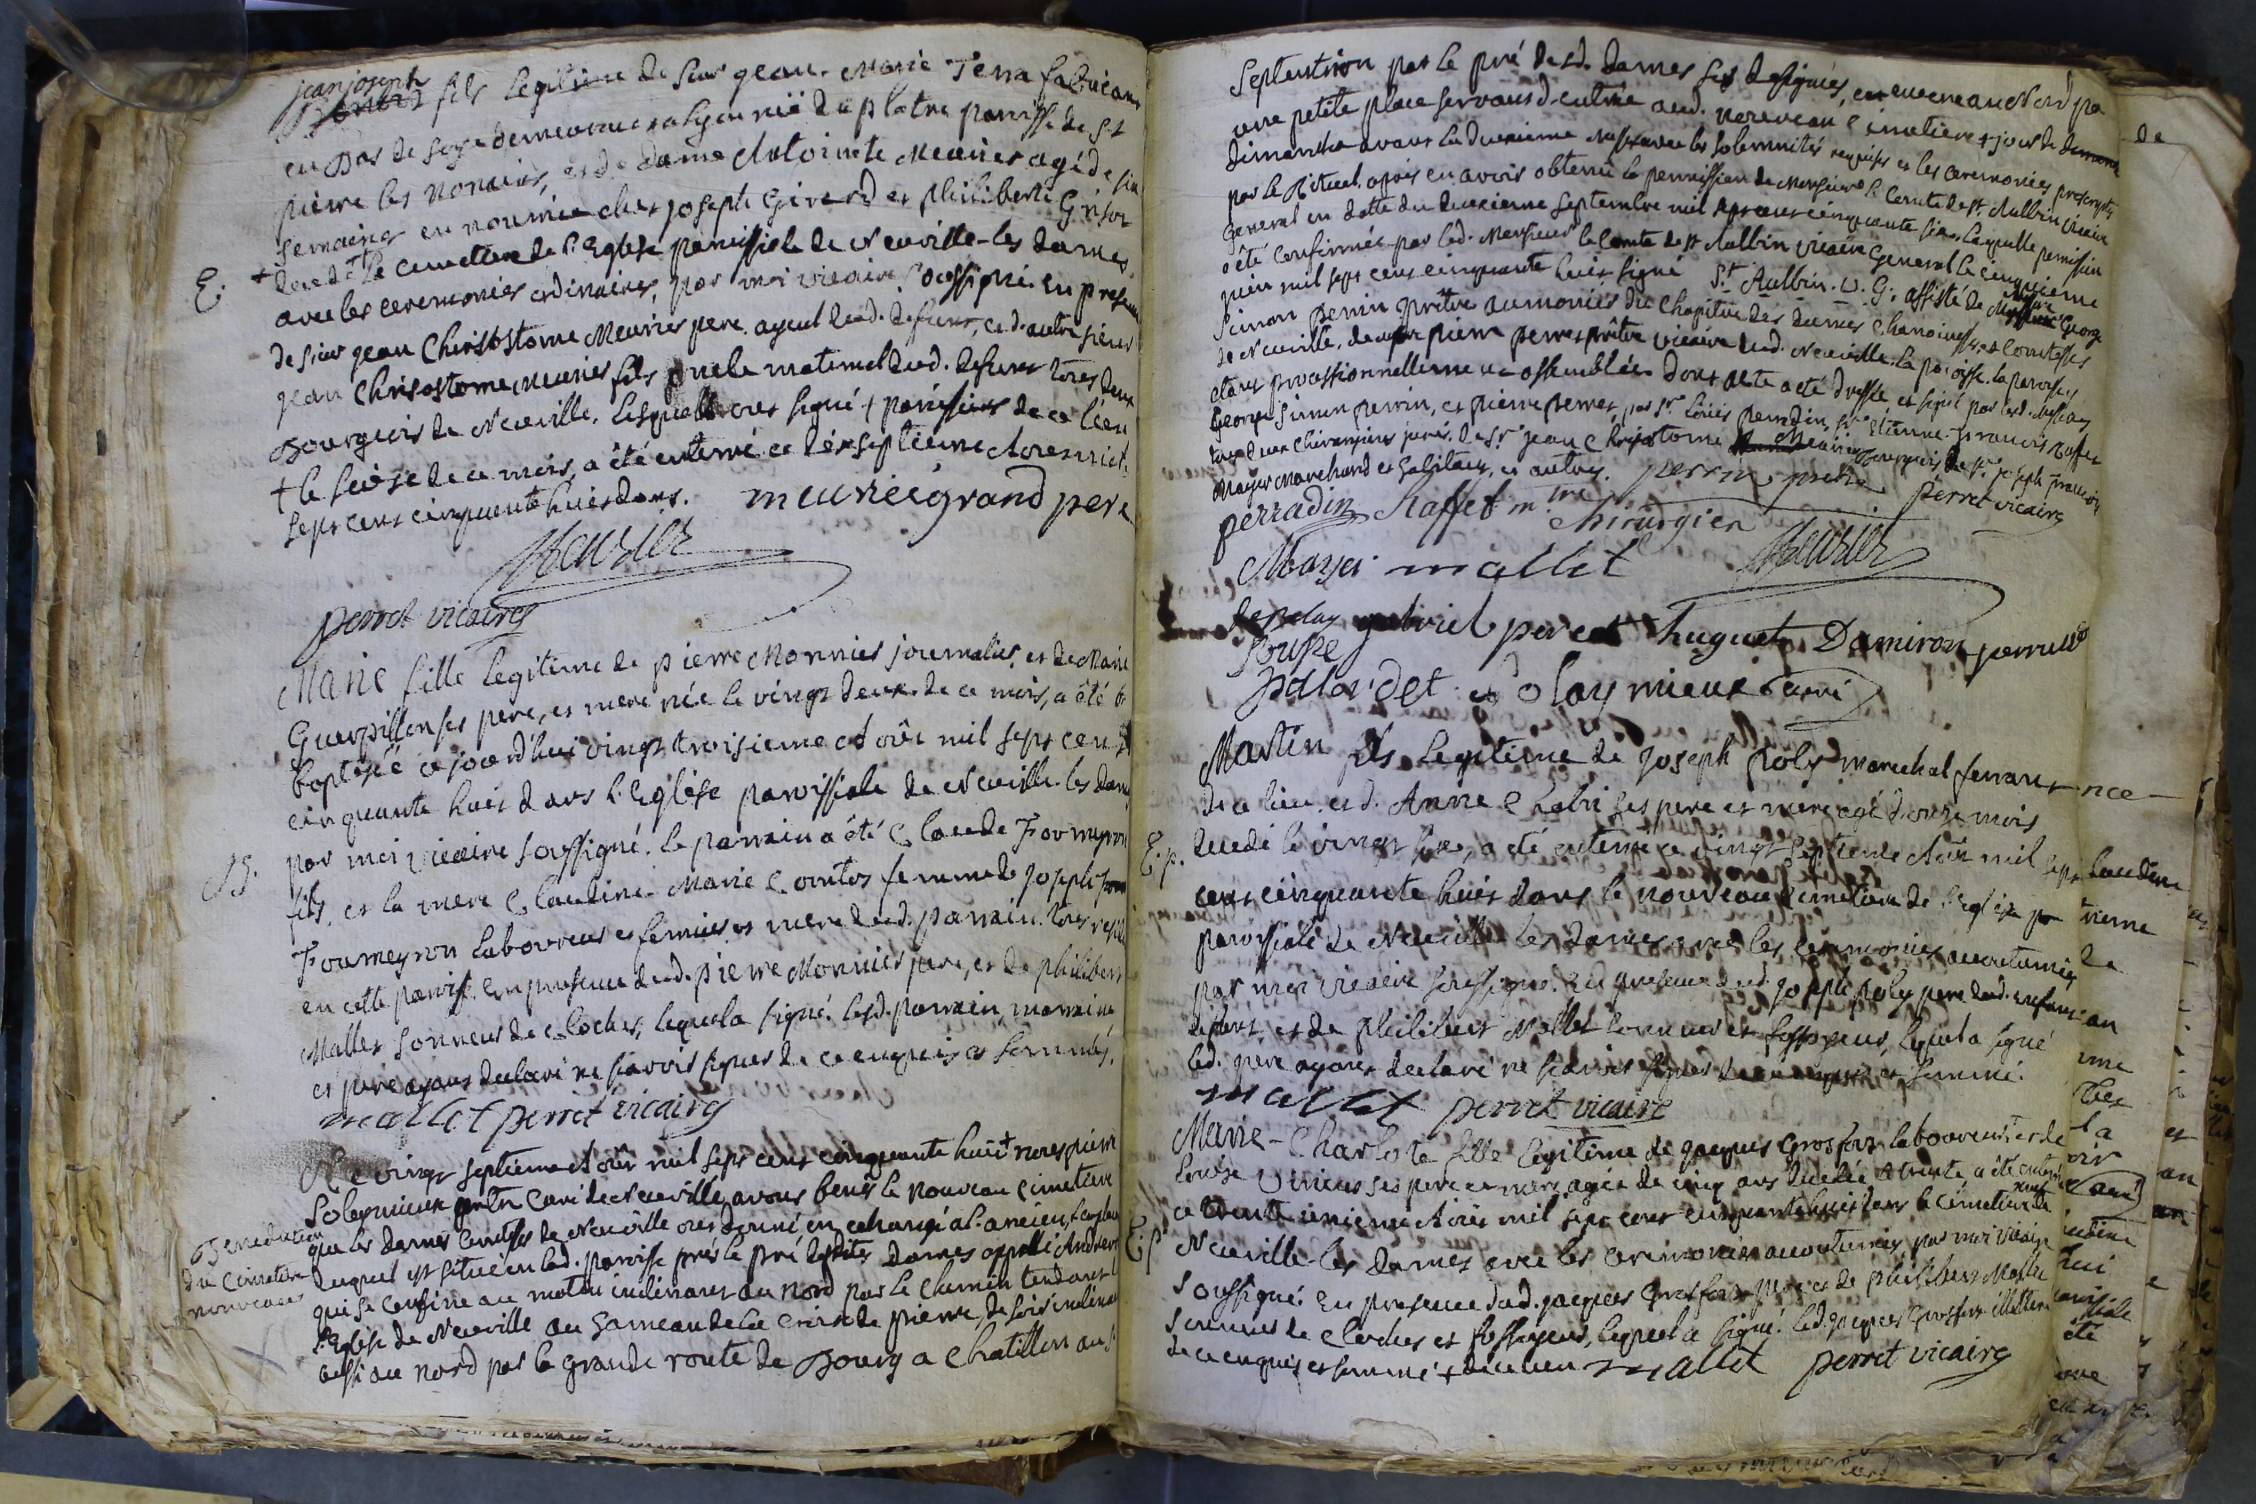 jean joseph
fils legitime de sieur jean Marie Terra fabricant
en bas de soye demeurant a lyon ruë du platre paroisse de st
pierre les nonains, et de dame Antoinete Meurier agé de six
semaines en nourrice chez joseph Girard et philiberte
decedé + le cimettiere de l'Eglise paroissiale de Neuville-les dames
E.
avec les ceremonies ordinaires, par moi vicaire soussigné. en presence
de sieur jean Chrisostome Meurier pere. ayeul dud. defunt, et d'autre sieur
jean Chrisostome Meurier fils oncle maternel dud. defunt tous deux
Bourgeois de Neuville, lesquels ont signé + paroissiens de ce lieu
+ le seize de ce mois, a été enterré ce dix septieme Aout mil
sept cent cinquante huit dans. meurier grand pere
Meurier
perret vicaire
Marie fille legitime de pierre Monnier journalier, et de Marie
Guerpillon ses pere, et mere née le vingt deux de ce mois, a été
baptisée ce jourd'hui vingt troisieme Août mil sept cent
cinquante huit dans l'Eglise paroissiale de Neuville-les dames
par moi vicaire soussigné. le parrain a été Claude Fourneyron
B.
fils, et la mere Claudine Marie Contos femme de joseph
Fourneyron laboureur et fermier et mere dud. parrain. tous
en cette paroisse. en presence dud. pierre Monnier pere, et de philibert
Mallet sonneur de cloches, lequel a signé. lesd. parrain, marraine
et pere ayant declaré ne sçavoir signer de ce enquis et sommés.
mallet perret vicaire
Ce vingt septieme Août mil sept cent cinquante huit + nous pierre
Solaymieux prêtre Curé de Neuville avons beni le nouveau cimetiere
Benediction
du Cimetiere
nouveau
que les dames Comtesses de Neuville ont donné en echange a l'ancien,
duquel est situé en lad. paroisse près le pré desdites dames appellé
qui se confine au matin inclinant au nord par le chemin tendant
l'Eglise de Neuville au hameau de la croix de pierre, de soir inclinant
aussi au nord par la grande route de Bourg a Chatillon au
Septentrion par le pré desd. dames
une petite place servant d'entrée aud. nouveau cimetiere + jour de
dimanche avant la deuxieme messe avec les solemnités requises et les ceremonies prescrites
par le Rituel. apres en avoir obtenu la permission de Monsieur le Comte de st. Aulbin vicaire
General en datte du deuxieme septembre mil sept cent cinquante six, laquelle permission
a été confirmée par led. Monsieur le Comte de st Aulbin vicaire General le cinquieme
juin mil sept cent cinquante huit signé St. Aulbin. V. G. assisté de Messire George
Simon perrin prêtre aumonier du Chapitre des dames Chanoinesses et Comtesses
de Neuville, de pierre perret prêtre vicaire dud. Neuville. la paroisse
etant processionnellement assemblée. Dont acte a été dressé et signé par lesd. Messires
George Simon perrin, et pierre perret, par sr. Loüis perradin, sr. Etienne François Raffet
tous deux chirurgiens jurés. de sr. jean Chrisostome Meurier Bourgeois de sr. joseph François
Mayer Marchand et habitans, et autres. perrin prêtre perret vicaire
perradin Raffet mtre chirurgien
Mayer mallet Meurier
gabriel peret huguet Damiron
Solaymieux curé
Martin fils legitime de joseph poly marechal ferrant
de ce lieu. et d'Anne Chabri ses pere et mere agé d'onze mois
decedé le vingt six, a été enterré ce vingt septieme Août mil sept
E. p.
cent cinquante huit dans le nouveau cimetiere de l'eglise
paroissiale de Neuville les dames avec les ceremonies accoutumées
par moi vicaire soussigné. en presence dud. joseph poly pere dud. enfant
defunt et de philibert Mallet sonneur et fossoyeur, lequel a signé
led. pere ayant declaré ne sçavoir signer de ce enquis et sommé.
mallet perret vicaire
Marie-Charlote fille legitime de jaques Grosfort laboureur, et de
ses pere et mere, agée de cinq ans decedée le trente, a été enterrée
ce trente unieme Août mil sept cent cinquante huit dans le cimetiere neuf de
E. p
Neuville-les dames avec les ceremonies accoutumées, par moi vicaire
soussigné. en presence dud. jaques Grosfort pere et de philibert Mallet
sonneur de cloches et fossoyeur, lequel a signé. led. jaques Grosfort illiteré
de ce enquis et sommé + de ce lieu mallet perret vicaire